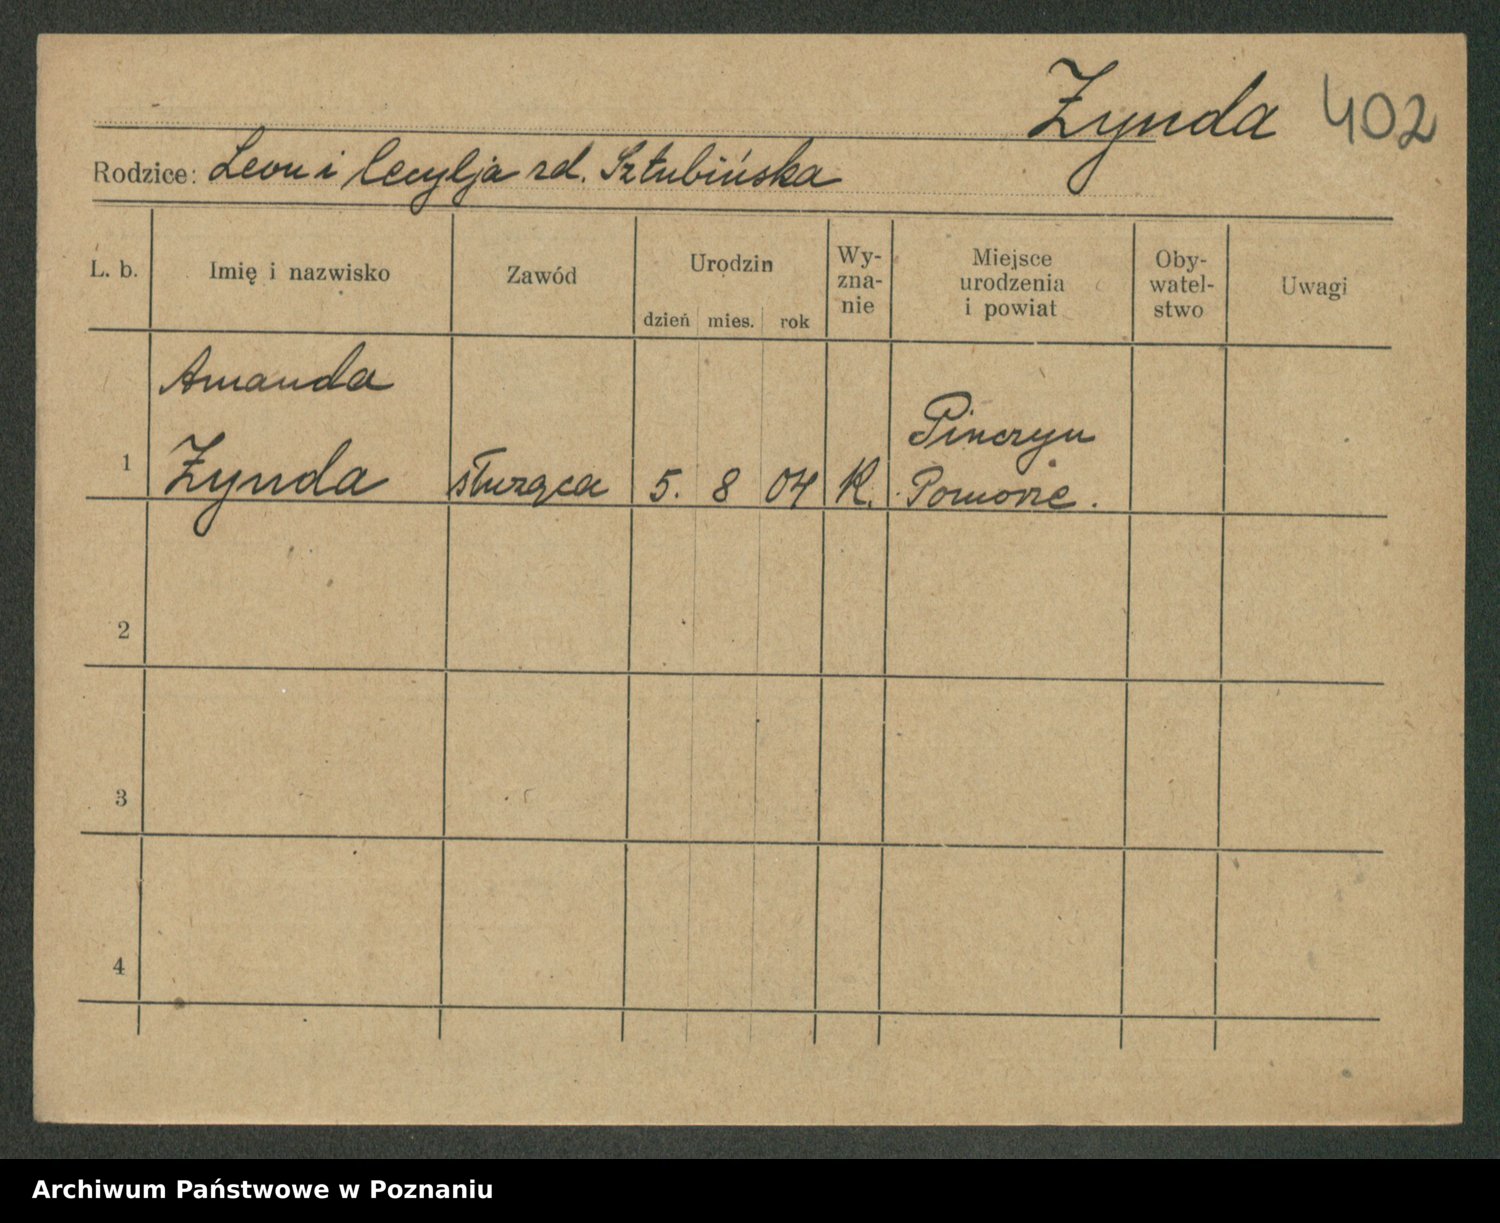 Zynda 402
Rodzice: Leon i Cecylja rd. Sztubińska
L. b. Imię i nazwisko Zawód Urodzin dzień mies. rok Wy-zna-nie Miejsce urodzenia i powiat Oby-watel-stwo Uwagi
Amanda
1 Zynda służąca 5. 8 04 K. Pinczyn
Pomorze.
2
3
4
Archiwum Państwowe w Poznaniu